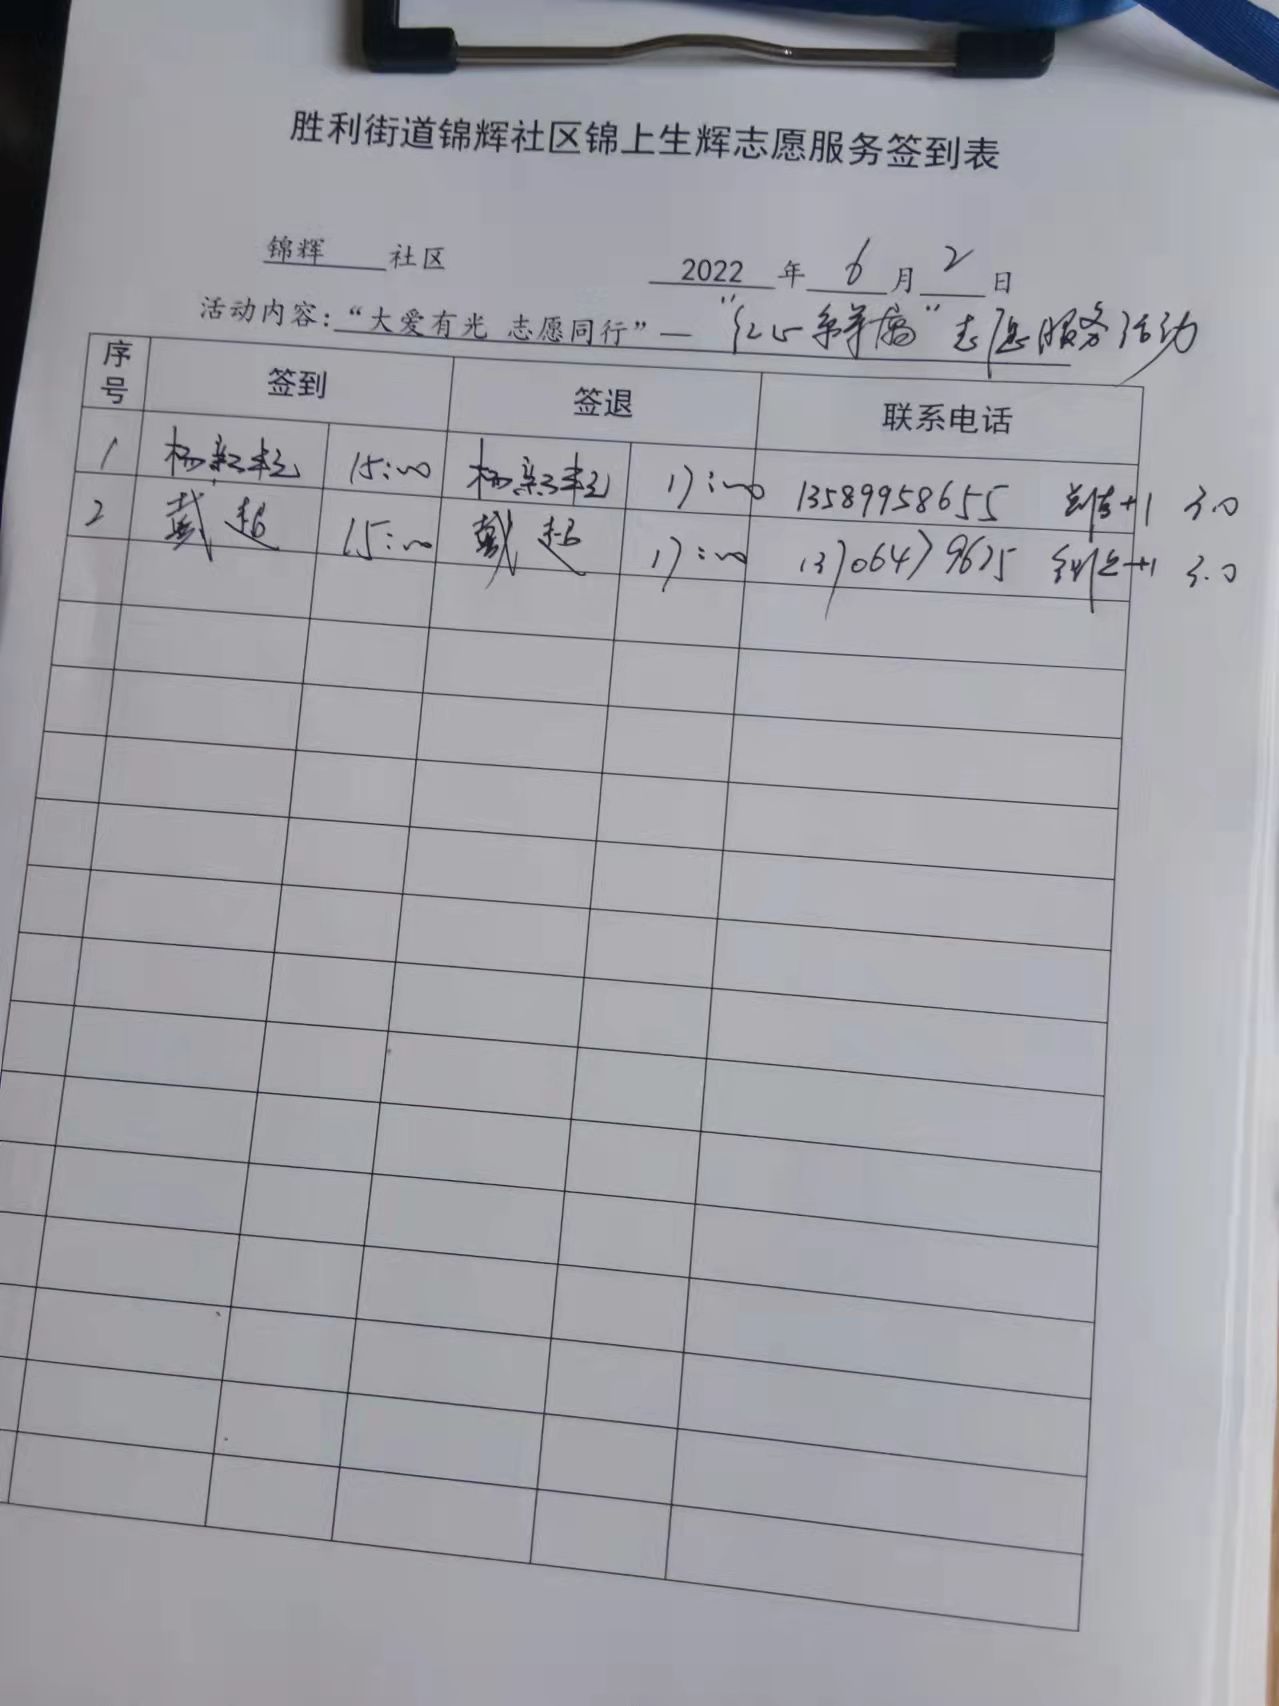 胜利街道锦辉社区锦上生辉志愿服务签到表
锦辉 社区 2022 年 6 月 2 日
活动内容：“大爱有光 志愿同行”— “红心解窝” 志愿服务活动
序号 签到 签退 联系电话
1 杨 15:00 杨 17:00 13589958655 +1 3.0
2 戴超 15:00 戴超 17:00 13706479625 +1 3.0